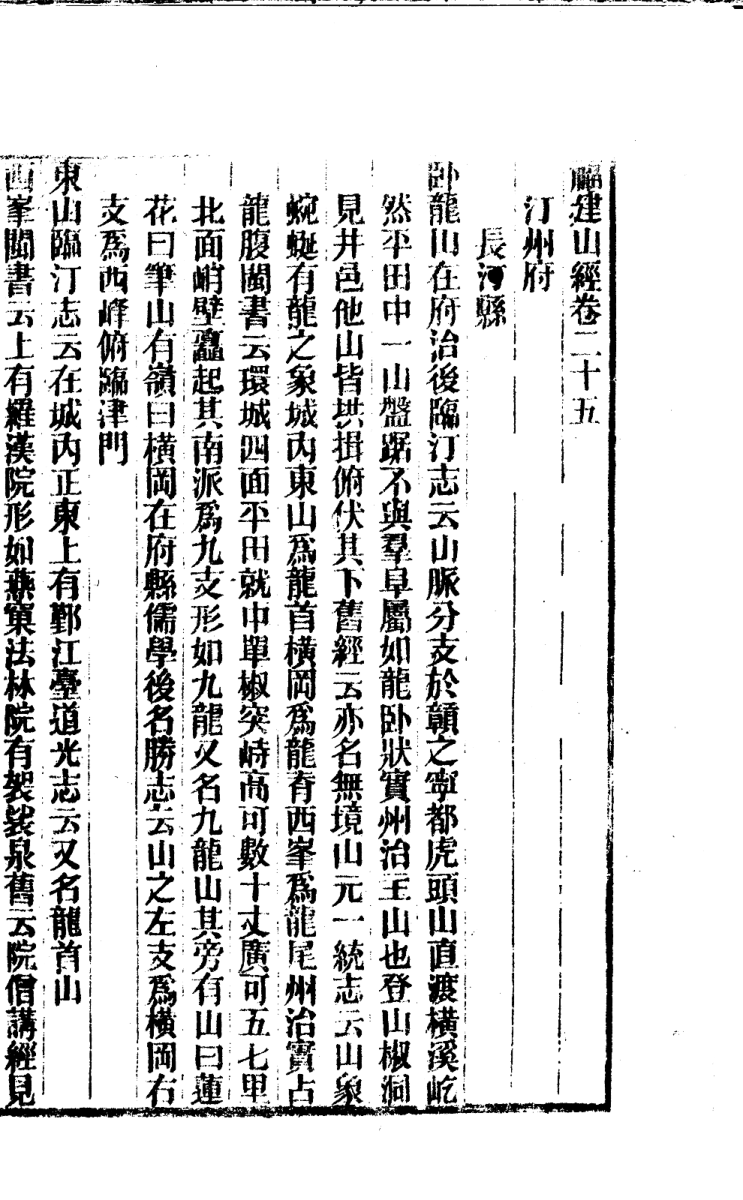 福建山經卷二十五
汀州府
長汀縣
臥龍山在府治後臨汀志云山脈分支於贛之寧都虎頭山直渡橫溪屹
然平田中一山盤踞不與羣阜屬如龍臥狀實州治主山也登山椒洞
見井邑他山皆拱揖俯伏其下舊經云亦名無境山元一統志云山象
蜿蜒有龍之象城內東山爲龍首橫岡爲龍脊西峯爲龍尾州治實占
龍腹閩書云環城四面平田就中單椒突峙高可數十丈廣可五七里
北面峭壁矗起其南派爲九支形如九龍又名九龍山其旁有山曰蓮
花曰筆山有嶺曰橫岡在府縣儒學後名勝志云山之左支爲橫岡右
支爲西峰俯臨津門
東山臨汀志云在城內正東上有鄞江臺道光志云又名龍首山
西峯閩書云上有羅漢院形如燕窠法林院有袈裟泉舊云院僧講經見